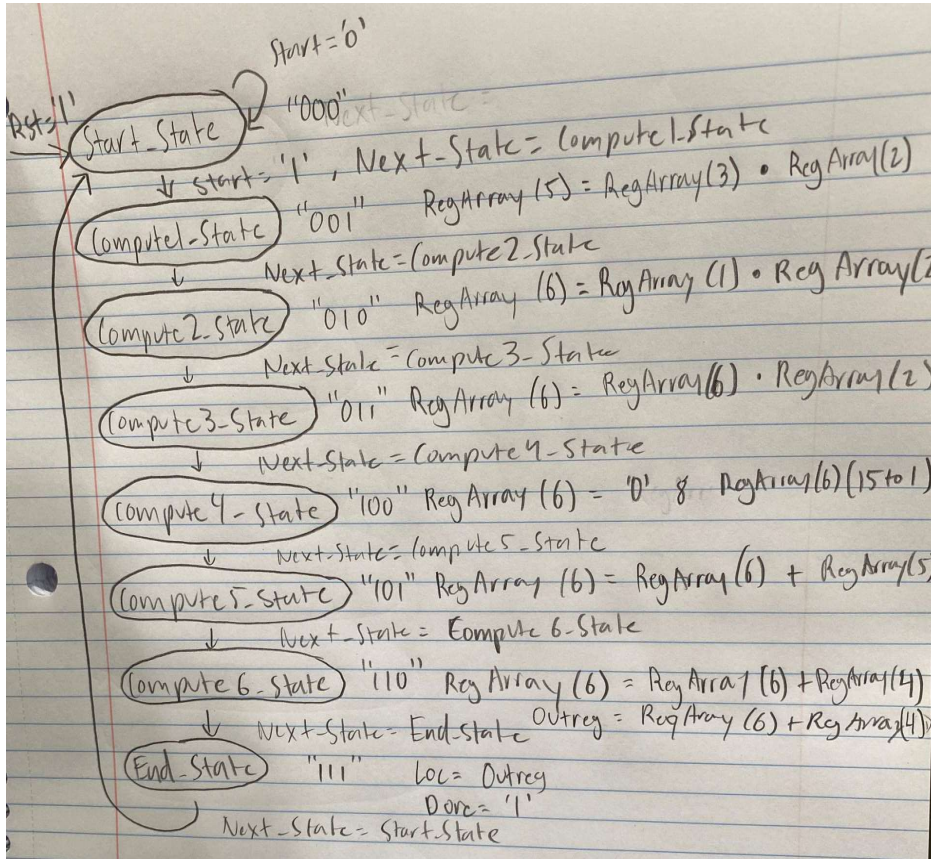 Start='0'
Rst='1'
Start_State "000"
start='1', Next_State = Compute1_State
Compute1_State "001" RegArray(5) = RegArray(3) • RegArray(2)
Next_State = Compute2_State
Compute2_State "010" RegArray (6) = RegArray (1) • RegArray(2
Next_State = Compute3_State
Compute3_State "011" RegArray (6) = RegArray(6) • RegArray(2)
Next_State = Compute4_State
Compute4_State "100" RegArray (6) = '0' & RegArray(6)(15 to 1)
Next_State = Compute5_State
Compute5_State "101" RegArray (6) = RegArray(6) + RegArray(5)
Next_State = Compute 6_State
Compute 6_State "110" RegArray (6) = RegArray (6) + RegArray(4)
Next_State = End_State Outreg = RegArray (6) + RegArray(4)
End_State "111" Loc = Outreg
Done = '1'
Next_State = Start_State